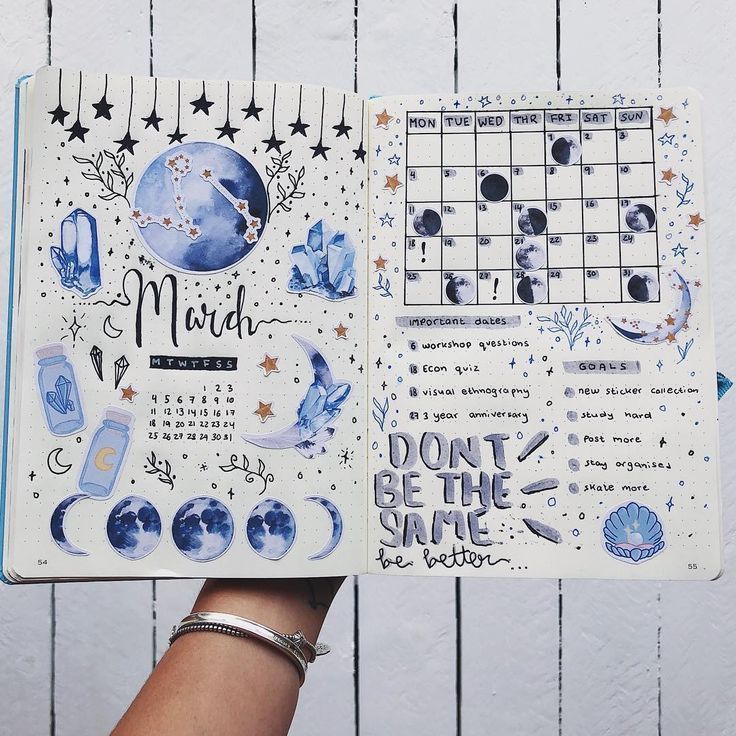 March
M T W T F S S
1 2 3
4 5 6 7 8 9 10
11 12 13 14 15 16 17
18 19 20 21 22 23 24
25 26 27 28 29 30 31
54
MON TUE WED THR FRI SAT SUN
1 2 3
4 5 6 7 8 9 10
11 12 13 14 15 16 17
18 19 20 21 22 23 24
!
25 26 27 28 29 30 31
!
Important dates
6 workshop questions
18 Econ quiz
18 visual ethnography
27 3 year anniversary
GOALS
new sticker collection
study hard
post more
stay organised
skate more
DONT
BE THE
SAME
be better...
55